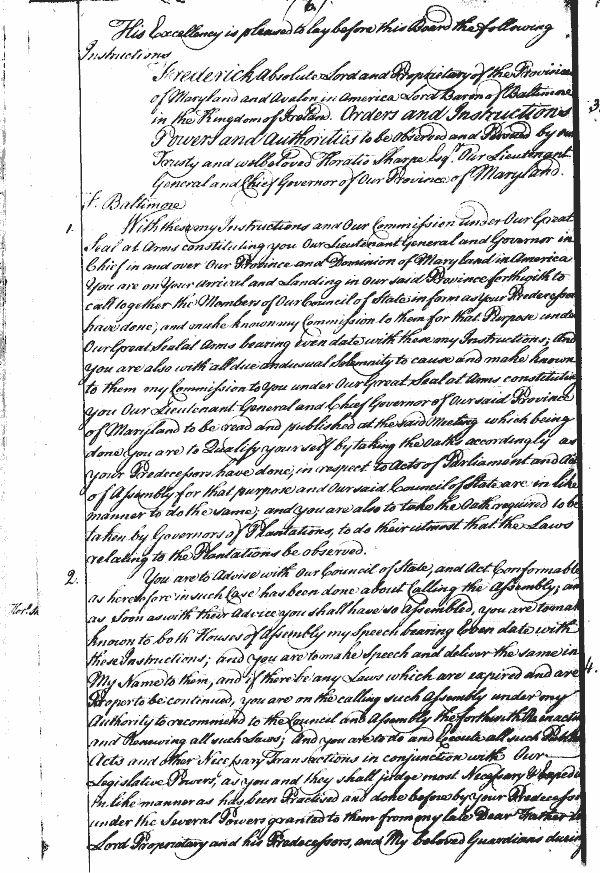 6.
His Excellency is pleased to lay before this Board the following
Instructions
Frederick Absolute Lord and Proprietary of the Province
of Maryland and Avalon in America Lord Baron of Baltimore
in the Kingdom of Ireland. Orders and Instructions
3.
Powers and Authorities to be Observed and by our
Trusty and welbeloved Horatio Sharpe Esqr. Our Lieutenant
General and Chief Governor of Our Province of Maryland.
F. Baltimore
1. With these my Instructions and Our Commission under Our Great
Seal at Arms constituting you Our Lieutenant General and Governor in
Chief in and over Our Province and Dominion of Maryland in America
You are on Your Arrival and Landing in Our said Province forthwith to
call together the Members of Our Council of State in form as your Predecessors
have done; and make known my Commission to them for that Purpose under
Our Great Seal at Arms bearing even date with these my Instructions; And
you are also with all due and usual Solemnity to cause and make known
to them my Commission to You under Our Great Seal at Arms constituting
you Our Lieutenant General and Chief Governor of Our said Province
of Maryland to be read and published at the said Meeting which being
done you are to Qualify yourself by taking the Oaths accordingly as
your Predecessors have done, in respect to Acts of Parliament and Acts
of Assembly for that purpose and Our said Council of State are in like
manner to do the same; and you are also to take the Oath required to be
taken by Governors of Plantations, to do their utmost that the Laws
relating to the Plantations be observed.
2. You are to Advise with Our Council of State, and Act Conformable
as heretofore in such Case has been done about Calling the Assembly; and
as soon as with their Advice you shall have so Assembled, you are to make
known to both Houses of Assembly my Speech bearing Even date with
these Instructions; and you are to make Speech and deliver the same in
My Name to them, and if there be any Laws which are expired and are
4.
Proper to be continued, you are on the calling such Assembly under my
Authority to recommend to the Council and Assembly the forthwith Reinacting
and Renewing all such Laws; And you are to do and Execute all such Publick
Acts and other Necessary Transactions in conjunction with Our
Legislative Powers, as you and they shall judge most Necessary & Expedient
in like manner as has been Practised and done before by your Predecessors
under the Several Powers granted to them from my late Dear Father
Lord Proprietary and his Predecessors, and My beloved Guardians during